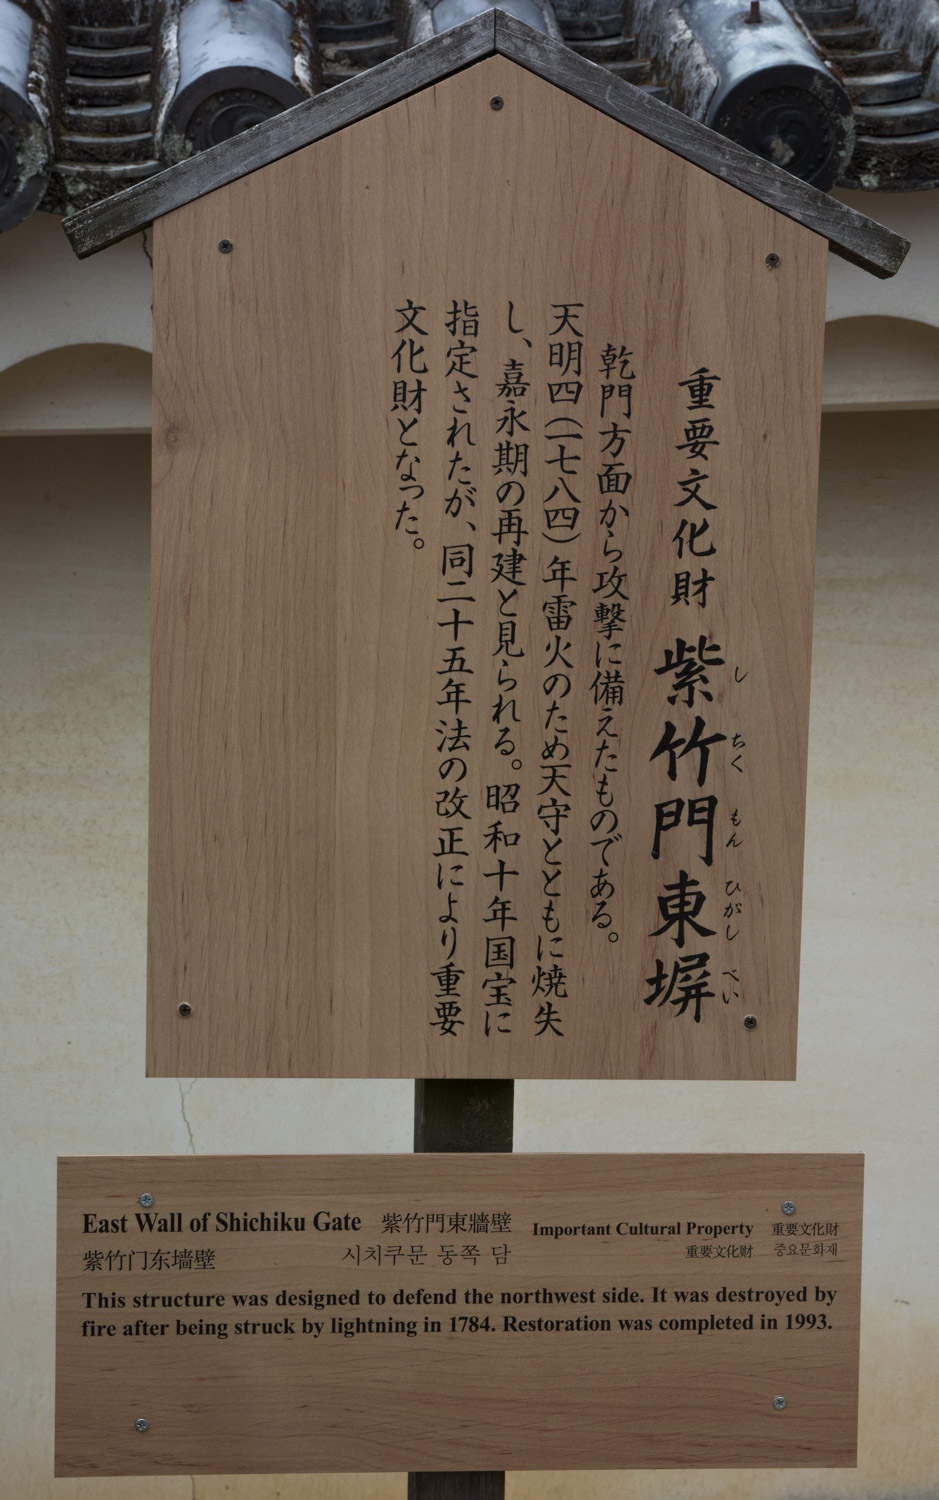 重要文化財 紫竹門東塀
し ちく もん ひがし べい
乾門方面から攻撃に備えたものである。
天明四(一七八四)年雷火のため天守とともに焼失
し、嘉永期の再建と見られる。昭和十年国宝に
指定されたが、同二十五年法の改正により重要
文化財となった。
East Wall of Shichiku Gate 紫竹門東牆壁 Important Cultural Property 重要文化財
紫竹门东墙壁 시치쿠문 동쪽 담 重要文化财 중요문화재
This structure was designed to defend the northwest side. It was destroyed by
fire after being struck by lightning in 1784. Restoration was completed in 1993.